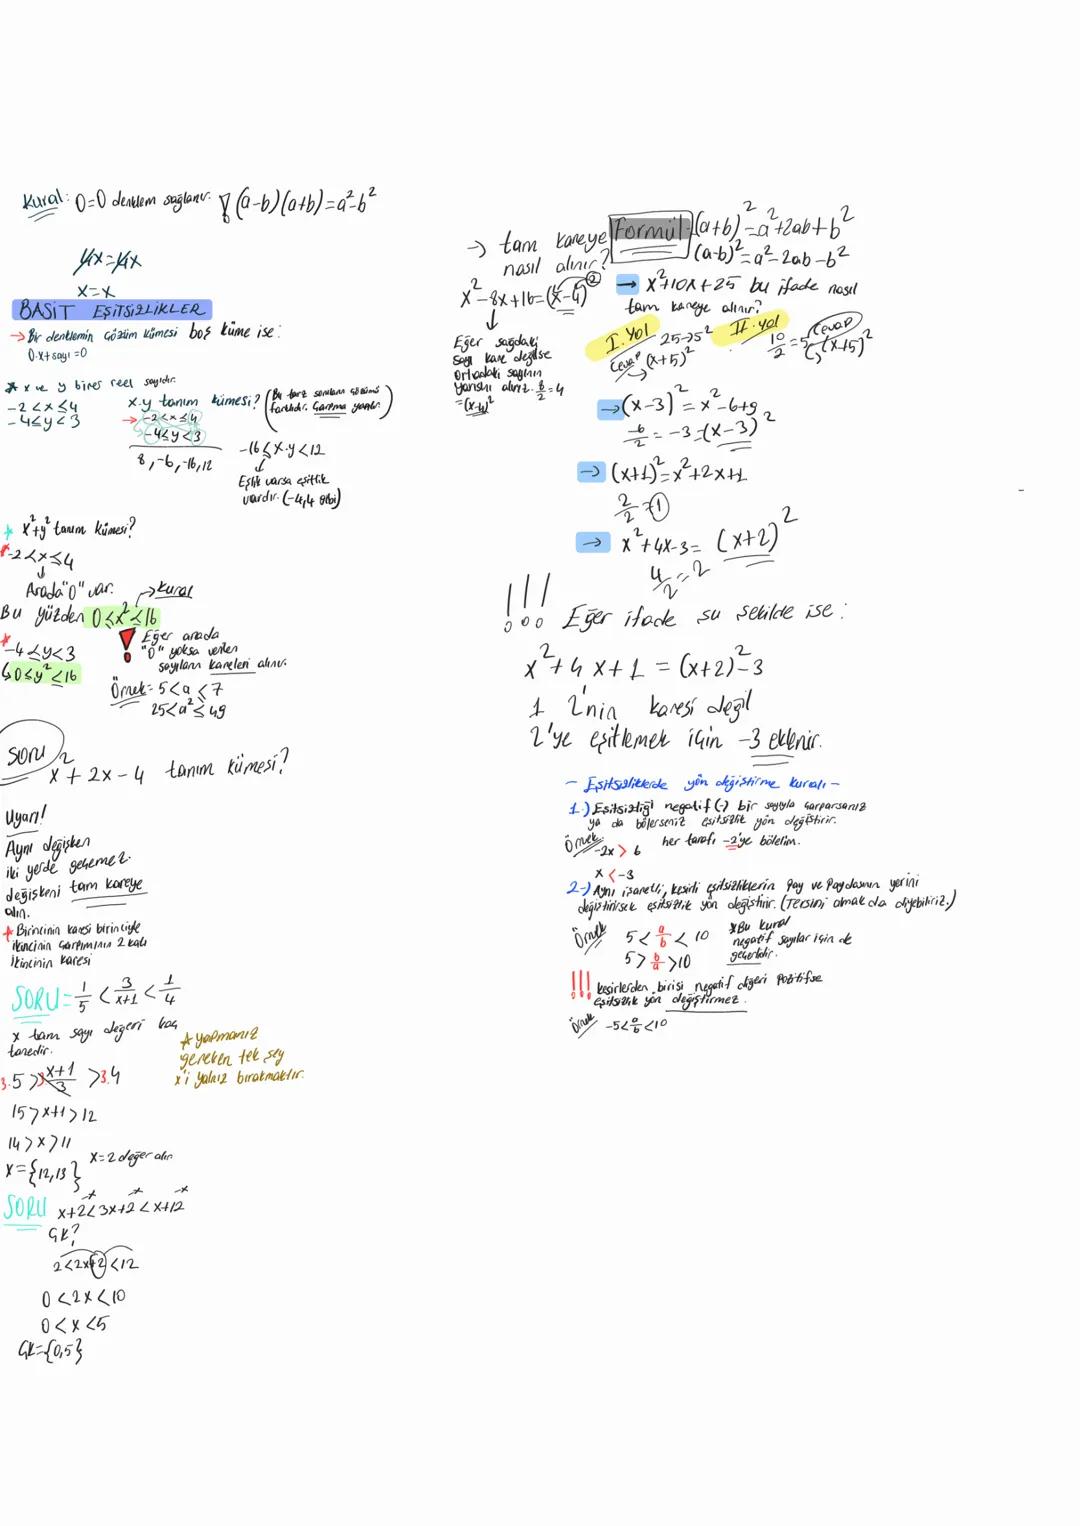 Kural: 0=0 denklem sağlanır. (a-b)(a+b)=a²-b²
4x=4x
x=x
BASİT EŞİTSİZLİKLER
→ Bir denklemin çözüm kümesi boş küme ise:
0.x+sayı=0
* x ve y birer reel sayıdır.
-2<x≤4
-4≤y<3
x.y tanım kümesi? (Bu tarz soruların çözümü farklıdır. Çarpma yapılır.)
→ -2<x≤4
-4≤y<3
8, -6, -16, 12
-16≤x.y<12
Eşlik varsa eşitlik
vardır. (-4,4 gibi)
* x²+y² tanım kümesi?
* -2<x≤4
Arada "0" var. → Kural
Bu yüzden 0≤x²≤16
* -4≤y<3
0≤y²≤16
! Eğer arada
"0" yoksa verilen
sayıların kareleri alınır.
Örnek= 5<a≤7
25<a²≤49
Soru
x²+2x-4 tanım kümesi?
Uyarı!
Aynı değişken
iki yerde geçemez.
değişkeni tam kareye
alın.
* Birincinin karesi birinciyle
ikincinin çarpımının 2 katı
ikincinin karesi
SORU= 1/5 < 3/x+1 < 1/4
x tam sayı değeri kaç
tanedir.
3.5 > 3 x+1/3 > 3.4
* yapmanız
gereken tek şey
x'i yalnız bırakmaktır.
15>x+1>12
14>x>11
x={12,13} x=2 değer alır
SORU x+2<3x+2<x+12
-x -x -x
ÇK?
2<2x+2<12
0<2x<10
0<x<5
ÇK={0,5}
→ tam kareye
nasıl alınır?
x²-8x+16=(x-4)²
Eğer sağdaki
sayı kare değilse
ortadaki sayının
yarısını alırız. 8/2=4
=(x-4)²
Formül (a+b)²=a²+2ab+b²
(a-b)²=a²-2ab-b²
→ x²+10x+25 bu ifade nasıl
tam kareye alınır?
I. Yol 25→5²
Cevap → (x+5)²
II. yol 10/2=5 Cevap (x+5)²
→ (x-3)²=x²-6+9
-6/2=-3=(x-3)²
→ (x+1)²=x²+2x+1
2/2=1
→ x²+4x-3= (x+2)²
4/2=2
!!! Eğer ifade şu şekilde ise:
x²+4x+1=(x+2)²-3
1 2'nin karesi değil
2'ye eşitlemek için -3 eklenir.
- Eşitsizliklerde yön değiştirme kuralı -
1.) Eşitsizliği negatif (-) bir sayıyla çarparsanız
ya da bölerseniz eşitsizlik yön değiştirir.
Örnek: -2x > 6 her tarafı -2'ye bölelim.
x < -3
2-) Aynı işaretli, kesirli eşitsizliklerin pay ve paydasının yerini
değiştirirsek eşitsizlik yön değiştirir. (Tersini almak da diyebiliriz.)
Örnek 5 < a/b < 10
5 > b/a > 10
*Bu kural
negatif sayılar için de
geçerlidir.
!!! kesirlerden birisi negatif diğeri pozitifse
eşitsizlik yön değiştirmez.
Örnek -5<a/b<10